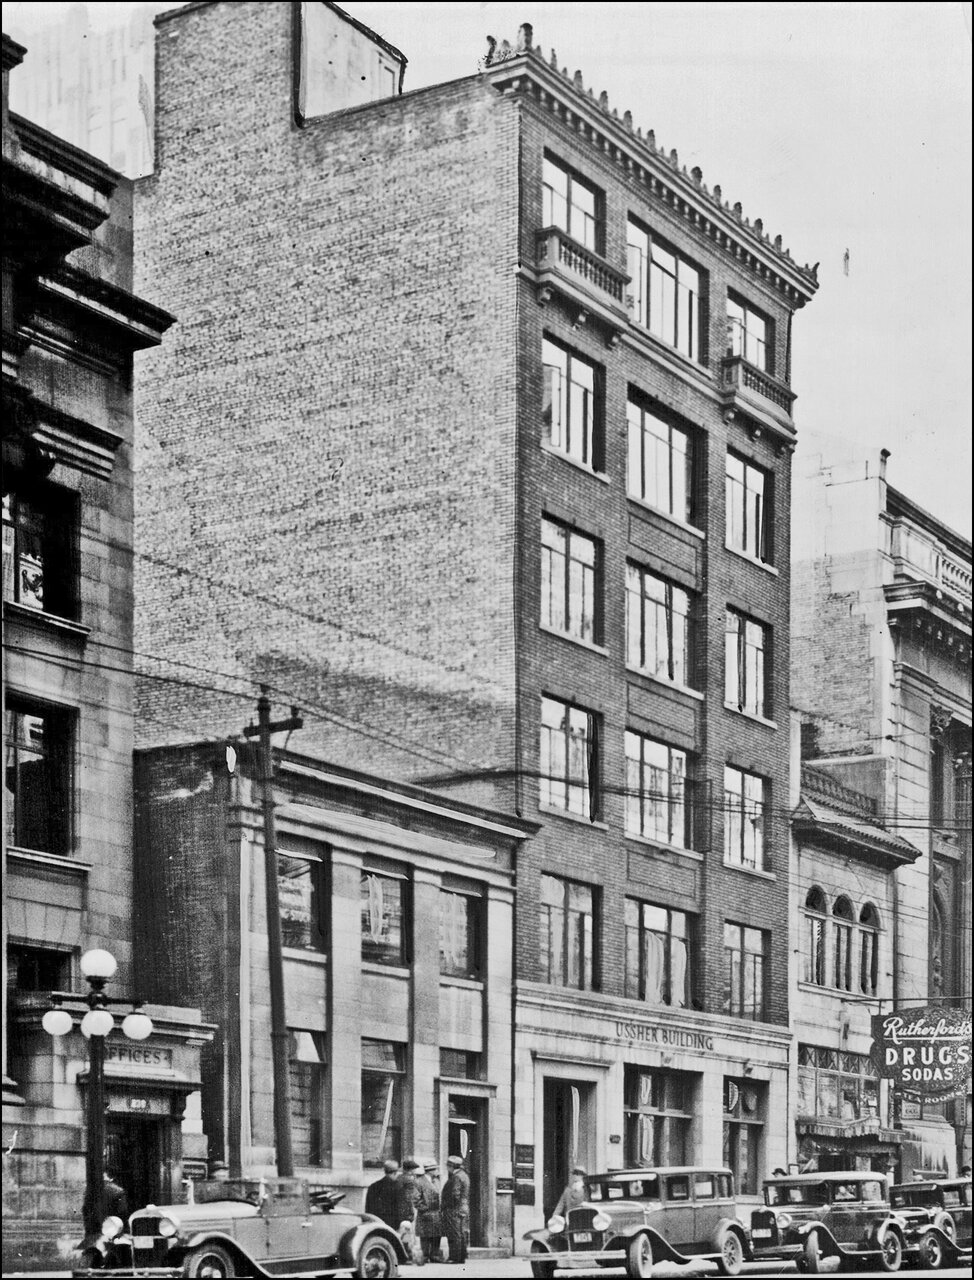 OFFICES
USSHER BUILDING
Rutherford's
DRUGS
SODAS
TEA ROOM